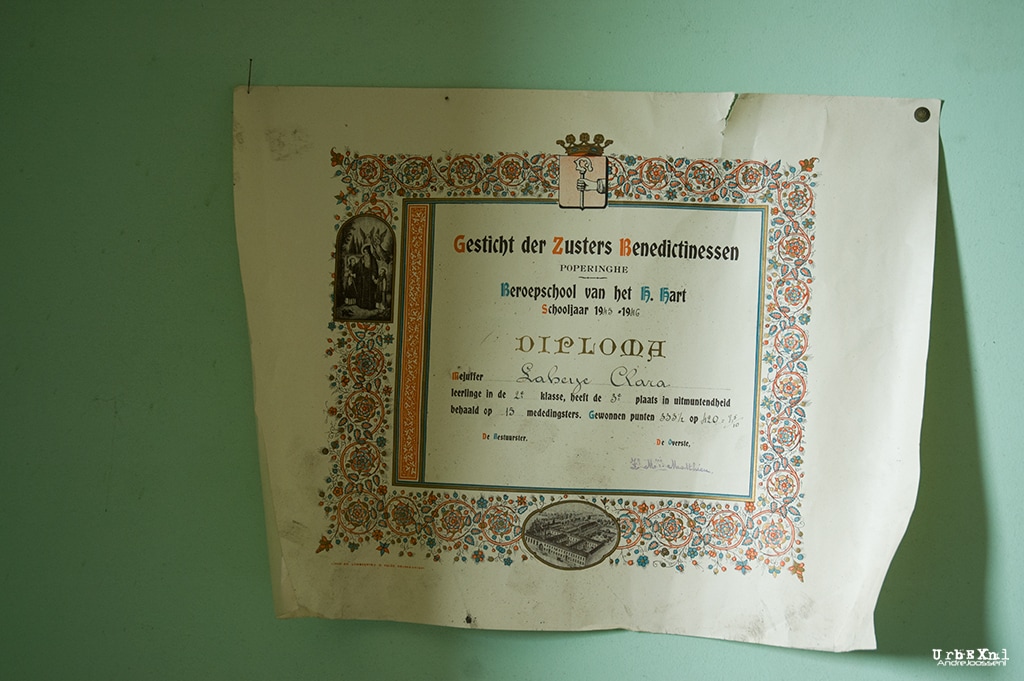 Gesticht der Zusters Benedictinessen
POPERINGHE
Beroepschool van het H. Hart
Schooljaar 1945-1946
DIPLOMA
Mejuffer Laheye Clara
leerlinge in de 2e klasse, heeft de 3e plaats in uitmuntendheid
behaald op 13 mededingsters. Gewonnen punten 333½ op 420
De Bestuurster. De Overste,
UrbEXnl
AndreJoossent